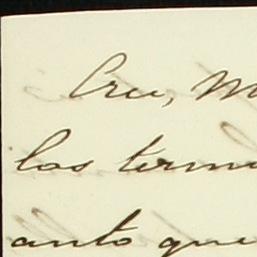 Cru, M
los term
anto que